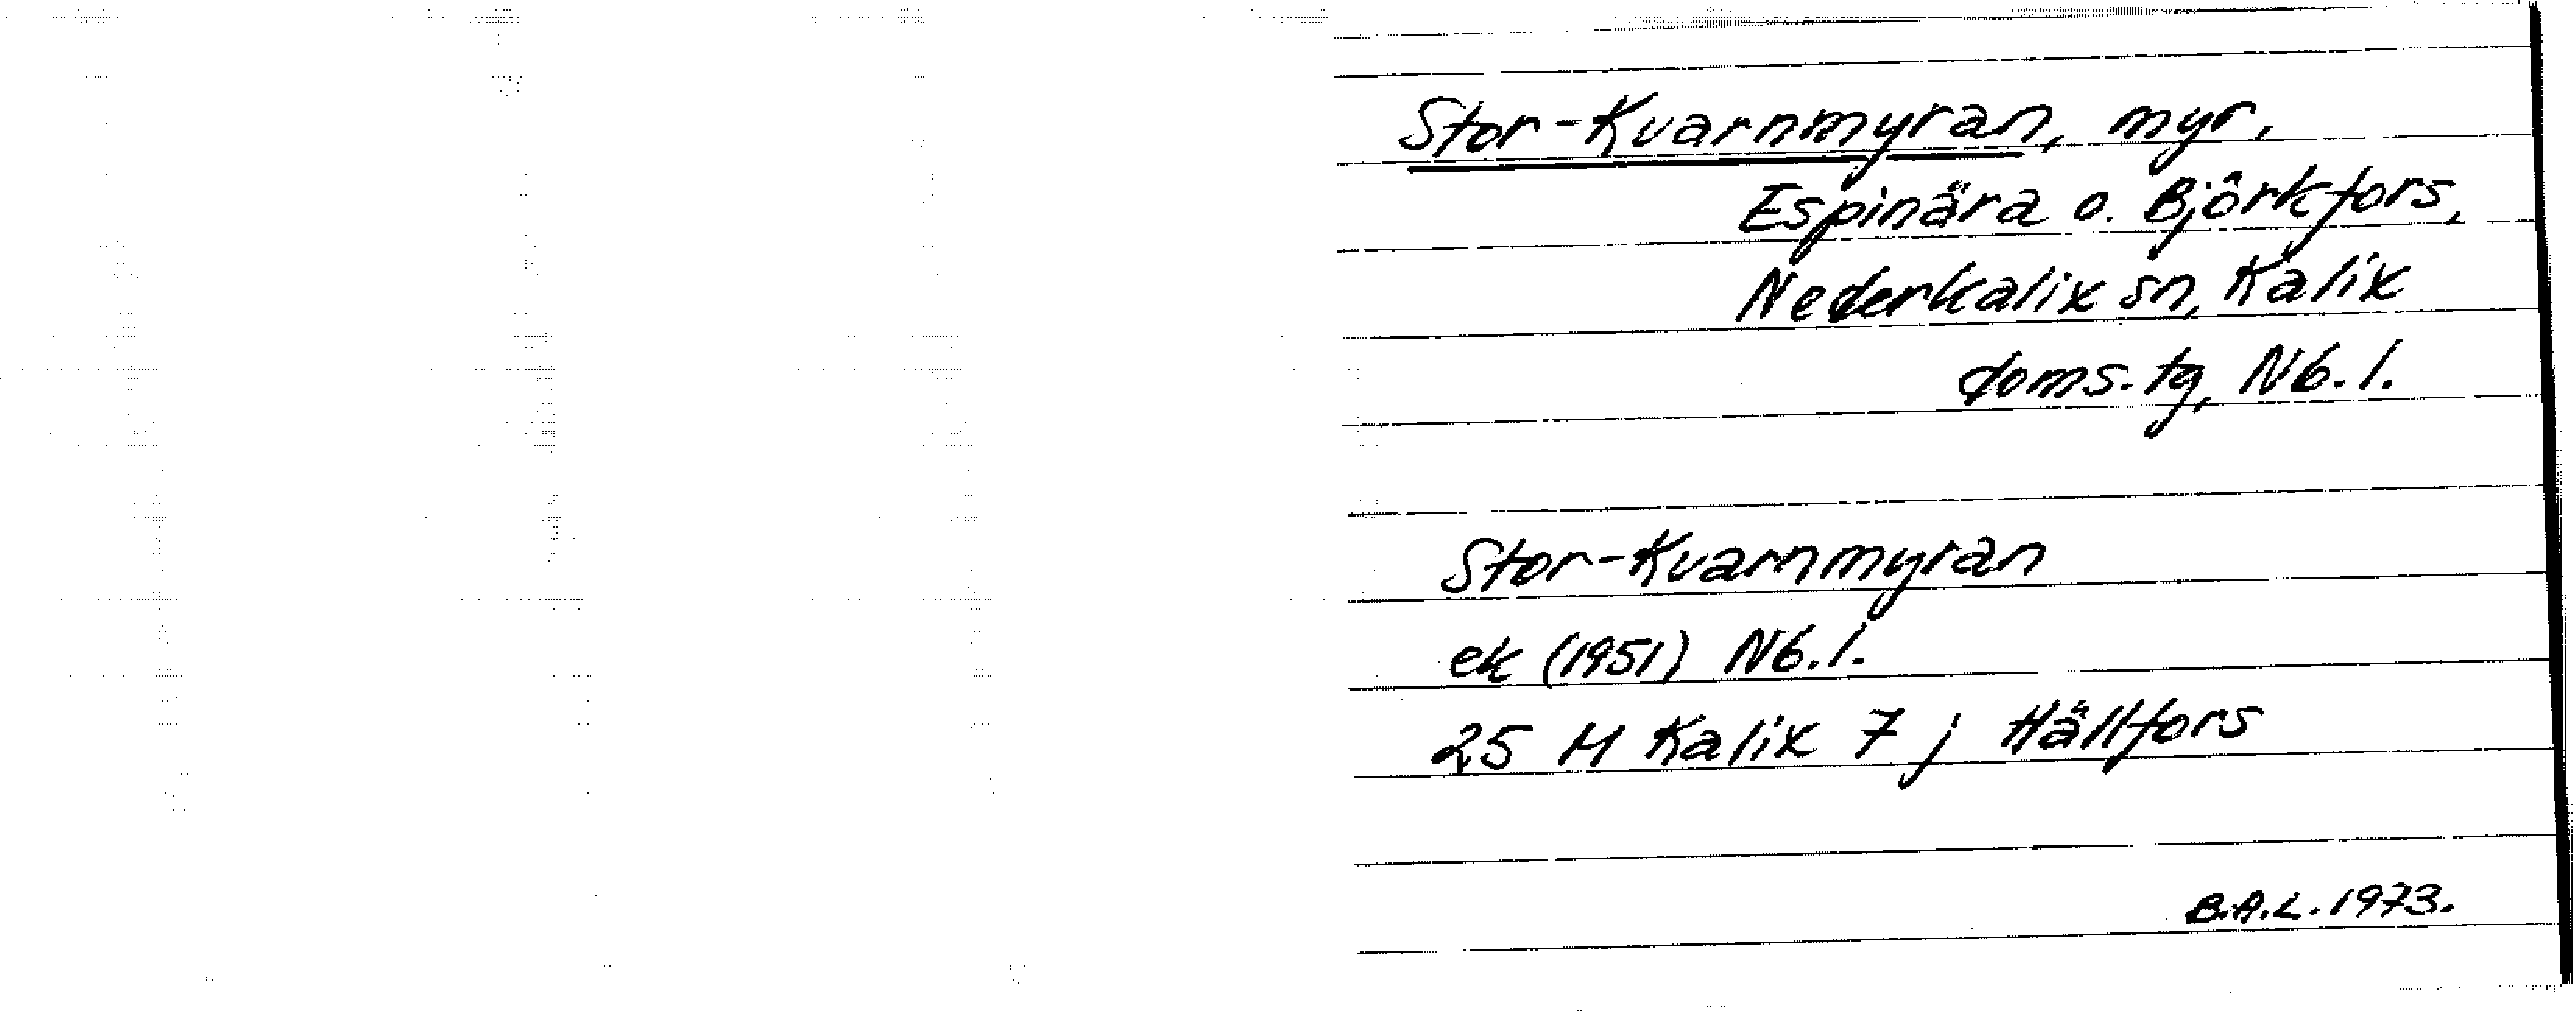 Stor-Kvarnmyran, myr.
Espinära o. Björkfors,
Nederkalix sn, Kalix
doms. tg, Nb. l.
Stor-Kvarnmyran
ek (1951) Nb. l.
25 M Kalix 7 j Hällfors
B.A.L. 1973.